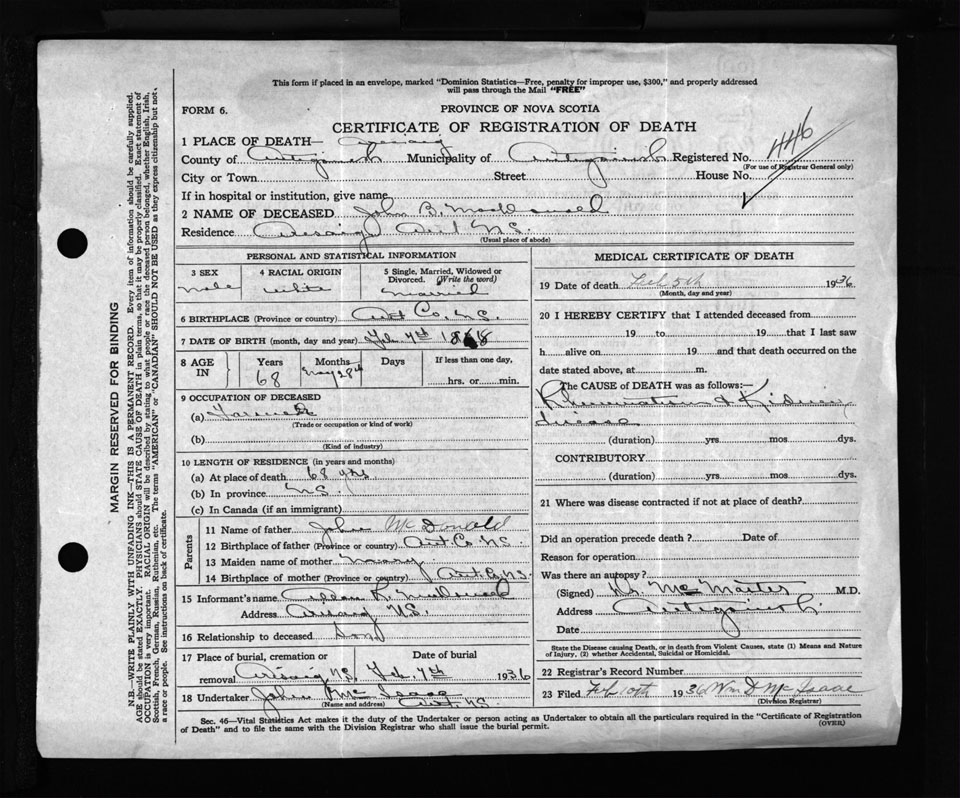 This form if placed in an envelope, marked "Dominion Statistics—Free, penalty for improper use, $300," and properly addressed
will pass through the Mail "FREE"
FORM 6.
PROVINCE OF NOVA SCOTIA
CERTIFICATE OF REGISTRATION OF DEATH
1 PLACE OF DEATH— Arisaig
County of Antigonish Municipality of Antigonish Registered No. 446
(For use of Registrar General only)
City or Town Street House No.
If in hospital or institution, give name
2 NAME OF DECEASED John B. MacDonald
Residence Arisaig Ant N.S.
(Usual place of abode)
PERSONAL AND STATISTICAL INFORMATION
3 SEX 4 RACIAL ORIGIN 5 Single, Married, Widowed or Divorced. (Write the word)
Male White Married
6 BIRTHPLACE (Province or country) Ant Co, N.S.
7 DATE OF BIRTH (month, day and year)
8 AGE IN Years Months Days If less than one day,
68 hrs. or min.
9 OCCUPATION OF DECEASED
(a) Farmer
(Trade or occupation or kind of work)
(b)
(Kind of industry)
10 LENGTH OF RESIDENCE (in years and months)
(a) At place of death 68 yrs.
(b) In province N.S.
(c) In Canada (if an immigrant)
Parents
11 Name of father John McDonald
12 Birthplace of father (Province or country) Ant Co N.S.
13 Maiden name of mother Mary
14 Birthplace of mother (Province or country) Ant Co N.S.
15 Informant's name
Address Arisaig N.S.
16 Relationship to deceased Son
17 Place of burial, cremation or removal Date of burial
Arisaig N.S. Feb. 7th 1936
18 Undertaker John McIsaac
(Name and address) Ant. N.S.
MEDICAL CERTIFICATE OF DEATH
19 Date of death Feb 5th 1936
(Month, day and year)
20 I HEREBY CERTIFY that I attended deceased from
19 to 19 that I last saw
h alive on 19 and that death occurred on the
date stated above, at m.
The CAUSE of DEATH was as follows:—
Rheumatism & Kidney
disease
(duration) yrs. mos. dys.
CONTRIBUTORY
(duration) yrs. mos. dys.
21 Where was disease contracted if not at place of death?
Did an operation precede death? Date of
Reason for operation
Was there an autopsy?
(Signed) Dr McMaster M.D.
Address Antigonish.
Date
State the Disease causing Death, or in death from Violent Causes, state (1) Means and Nature
of Injury, (2) whether Accidental, Suicidal or Homicidal.
22 Registrar's Record Number
23 Filed Feb 10th 1936 Wm D McIsaac
(Division Registrar)
Sec. 46—Vital Statistics Act makes it the duty of the Undertaker or person acting as Undertaker to obtain all the particulars required in the "Certificate of Registration
of Death" and to file the same with the Division Registrar who shall issue the burial permit.
(OVER)
MARGIN RESERVED FOR BINDING
N.B.—WRITE PLAINLY WITH UNFADING INK—THIS IS A PERMANENT RECORD. Every item of information should be carefully supplied.
AGE should be stated EXACTLY. PHYSICIANS should STATE CAUSE OF DEATH in plain terms, so that it may be properly classified. Exact statement of
OCCUPATION is very important. RACIAL ORIGIN will be described by stating to what people or race the deceased person belonged, whether English, Irish,
Scottish, French, German, Russian, Ruthenian, etc. The terms "AMERICAN" or "CANADIAN" SHOULD NOT BE USED as they express citizenship but not
a race or people. See instructions on back of certificate.